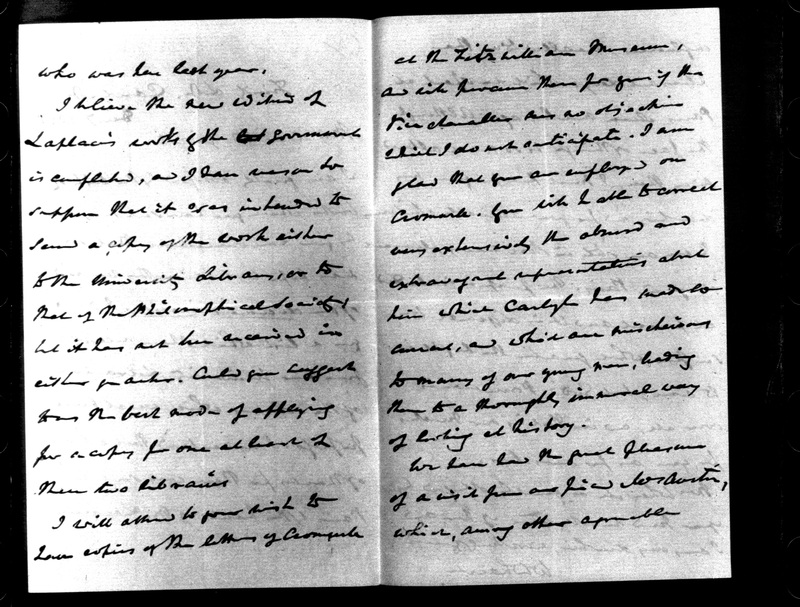 who was here last year.
I believe the new edition of
Laplace's works by the government
is completed, and I have reason to
suppose that it was intended to
send a copy of the work either
to the University Library, or to
that of the Philosophical Society,
but it has not been received in
either quarter. Could you suggest
to us the best mode of applying
for a copy for one at least of
these two libraries
I will attend to your wish to
have copies of the letters of Cromwell
at the Fitzwilliam Museum,
and will procure them for you if the
Vice chancellor has no objection
which I do not anticipate. I am
glad that you are employed on
Cromwell. You will be able to correct
very extensively the absurd and
extravagant representations about
him which Carlyle has made so
current, and which are mischievous
to many of our young men, leading
them to a thoroughly immoral way
of looking at history.
We have had the great pleasure
of a visit from our friend Mrs Austin,
which, among other agreeable